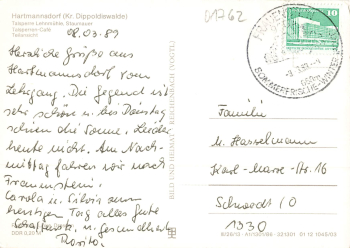 Hartmannsdorf (Kr. Dippoldiswalde)
Talsperre Lehnmühle, Staumauer
Talsperren-Café
Teilansicht
08.03.89
Herzliche Grüße aus
Hartmannsdorf vom
Lehrgang. Die Gegend ist
sehr schön u. bis Dienstag
schien die Sonne. Leider
heute nicht. Am Nach-
mittag fahren wir nach
Frauenstein.
Carola u. Silvia zum
heutigen Tag alles gute
Schaffenskr. u. Gesundheit
Dorito
DDR 0,20 M
BILD UND HEIMAT REICHENBACH (VOGTL)
01762
10
SOMMERFRISCHE
Familie
M. Hasselmann
Karl-Marx-Str. 16
Schwedt O
1330